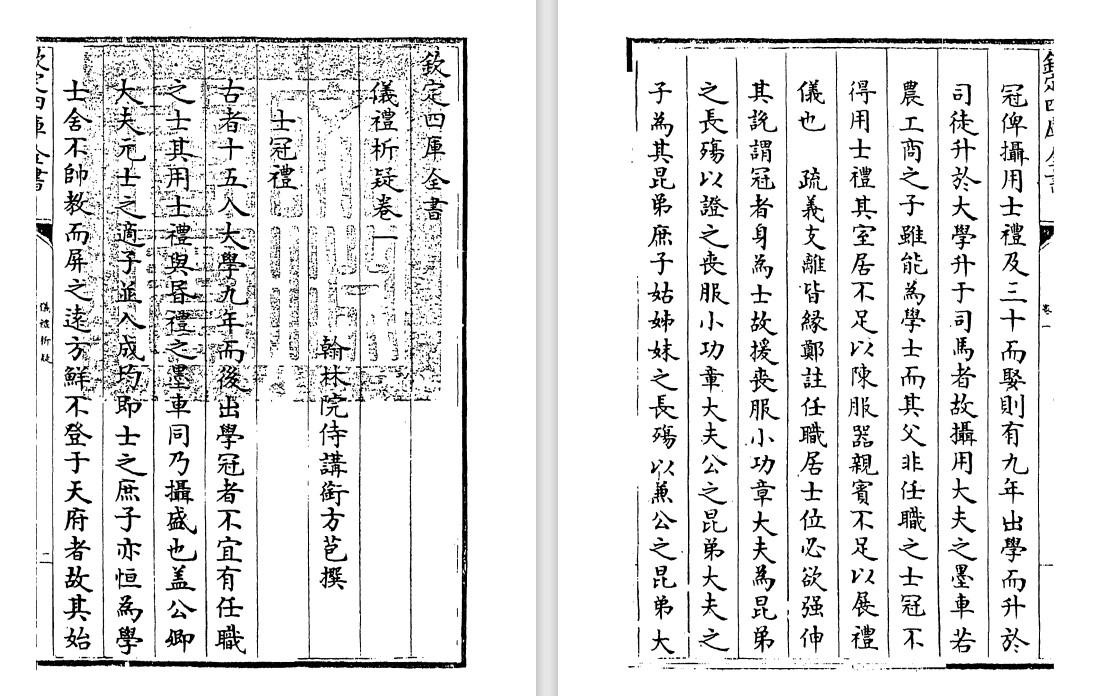 欽定四庫全書
儀禮析疑卷一
翰林院侍講銜方苞撰
士冠禮
古者十五入大學九年而後出學冠者不宜有任職
之士其用士禮與昏禮之墨車同乃攝盛也盖公卿
大夫元士之適子並入成均即士之庶子亦恒為學
士舍不帥教而屏之逺方鮮不登于天府者故其始
欽定四庫全書
儀禮析疑
二
卷一
冠俾攝用士禮及三十而娶則有九年出學而升於
司徒升於大學升于司馬者故攝用大夫之墨車若
農工商之子雖能為學士而其父非任職之士冠不
得用士禮其室居不足以陳服器親賓不足以展禮
儀也 疏義支離皆緣鄭註任職居士位必欲强伸
其說謂冠者身為士故援喪服小功章大夫為昆弟
之長殤以證之喪服小功章大夫公之昆弟大夫之
子為其昆弟庶子姑姊妹之長殤以兼公之昆弟大